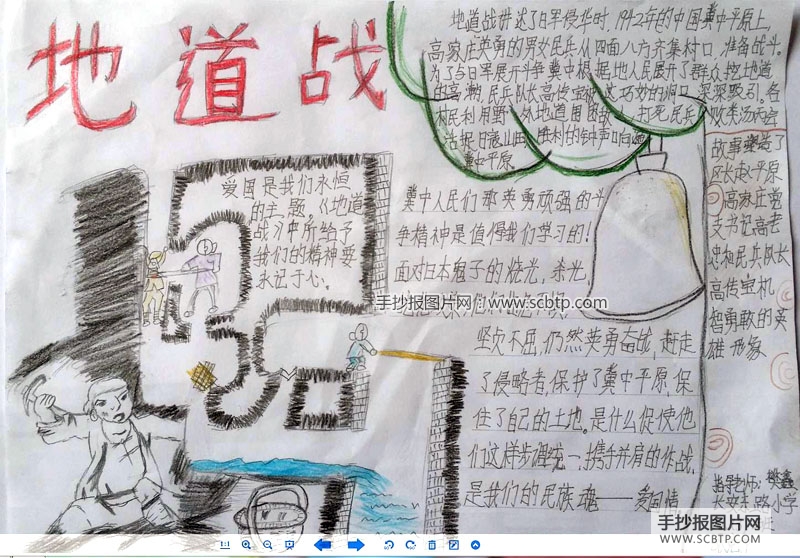 地道战
地道战讲述了日军侵华时,1942年的中国冀中平原上,
高家庄英勇的男女民兵从四面八方齐集村口,准备战斗。
为了与日军展开斗争冀中根据地人民展开了群众挖地道
的高潮,民兵队长高传宝
深深吸引。各
村民利用野外地道
民兵
活捉日寇山田,胜利的钟声响遍
冀中平原
爱国是我们永恒
的主题,《地道
战》中所给予
我们的精神要
永记于心。
冀中人民们那英勇顽强的斗
争精神是值得我们学习的!
面对日本鬼子的烧光,杀光,
手抄报图片网:www.scbtp.com
坚贞不屈,仍然英勇奋战,赶走
了侵略者,保护了冀中平原,保
住了自己的土地。是什么促使他
们这样步调统一,携手并肩的作战,
是我们的民族魂——爱国情
故事塑造了
区长赵平原
高家庄党
支书记高老
忠和民兵队长
高传宝机
智勇敢的英
雄形象
指导老师:
小学
手抄报图片网
WWW.SCBTP.COM